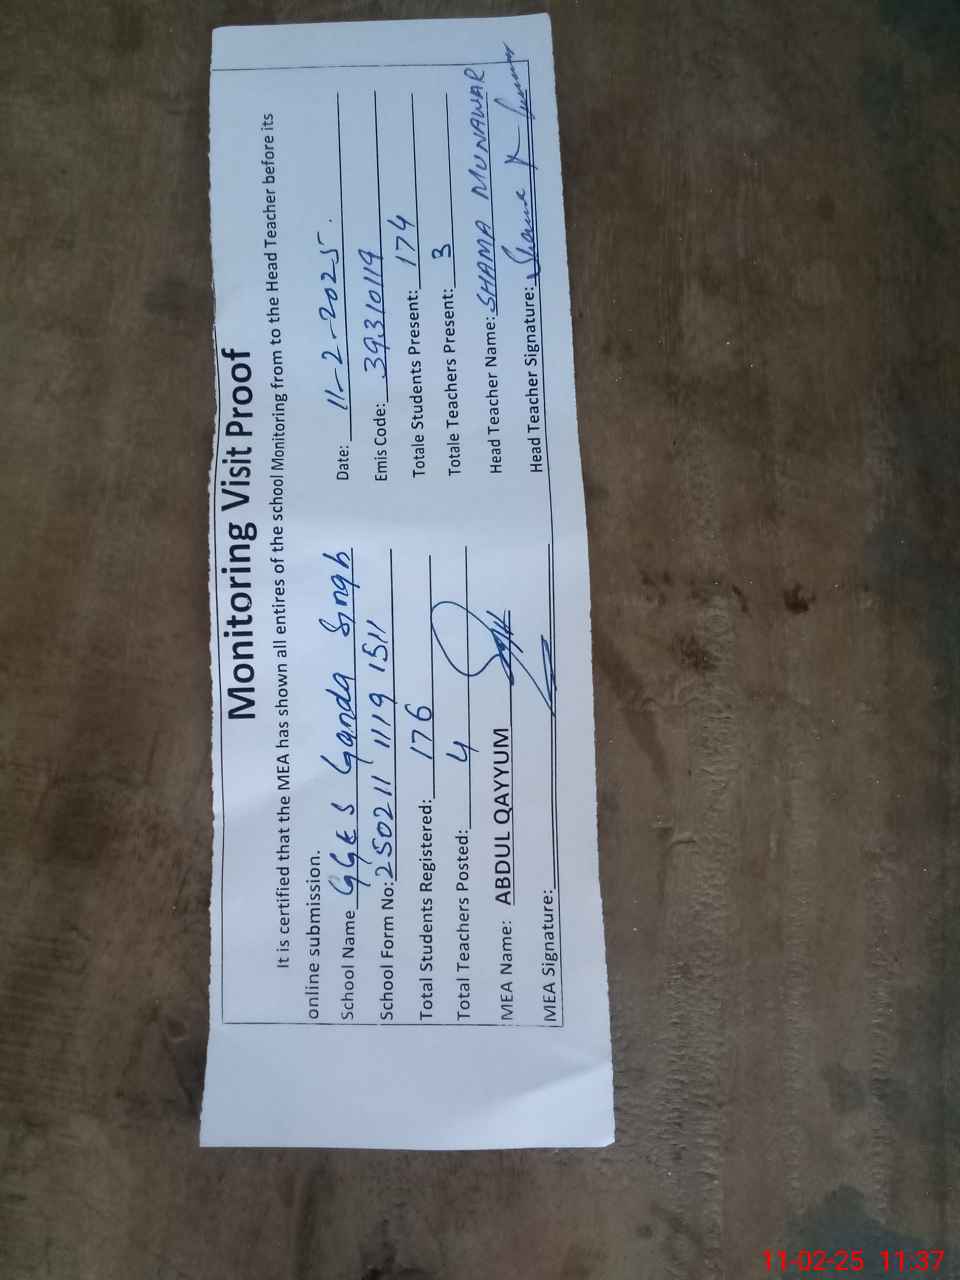 Monitoring Visit Proof
It is certified that the MEA has shown all entires of the school Monitoring from to the Head Teacher before its
online submission.
School Name GGES Ganda Singh Date: 11-2-2025.
School Form No: 250211 1119 1511 Emis Code: 39310119
Total Students Registered: 176 Totale Students Present: 174
Total Teachers Posted: 4 Totale Teachers Present: 3
MEA Name: ABDUL QAYYUM Head Teacher Name: SHAMA MUNAWAR
MEA Signature: Head Teacher Signature: Shama
11-02-25 11:37